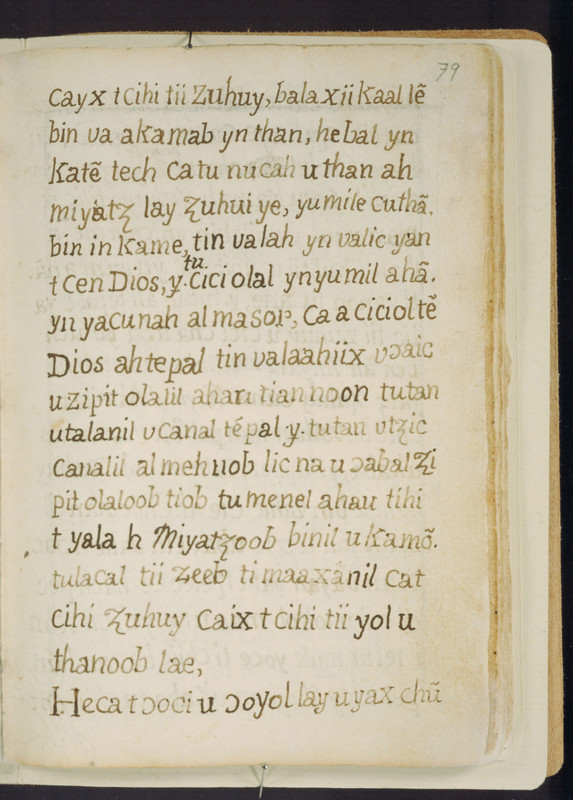 79
cayx tcihi tii Zuhuy, bala xii kaal lẽ
bin va akamab yn than, he bal yn
katẽ tech Catu nucah uthan ah
miyatꜩ lay ꜩuhui ye, yumile cuthã.
bin in kame, tin valah yn valic yan
tu.
tCen Dios, y. Cici olal ynyumil ahã.
yn yacunah almasor, Ca a ciciol tẽ
Dios ahtepal tin valaahiix vɔaic
uzipit olalil ahau tian noon tutan
utalanil vcanal tépal y. tutan vtꜩic
canalil almehnob lic na u ɔabal ꜩi
pit olaloob tiob tumenel ahau tihi
t yala h Miyatꜩoob binil u kamõ.
tulacal tii zeeb ti maaxánil Cat
cihi ꜩuhuy Caix tcihi tii yol u
thanoob lae,
Heca tɔoci u ɔoyol lay u yax chũ